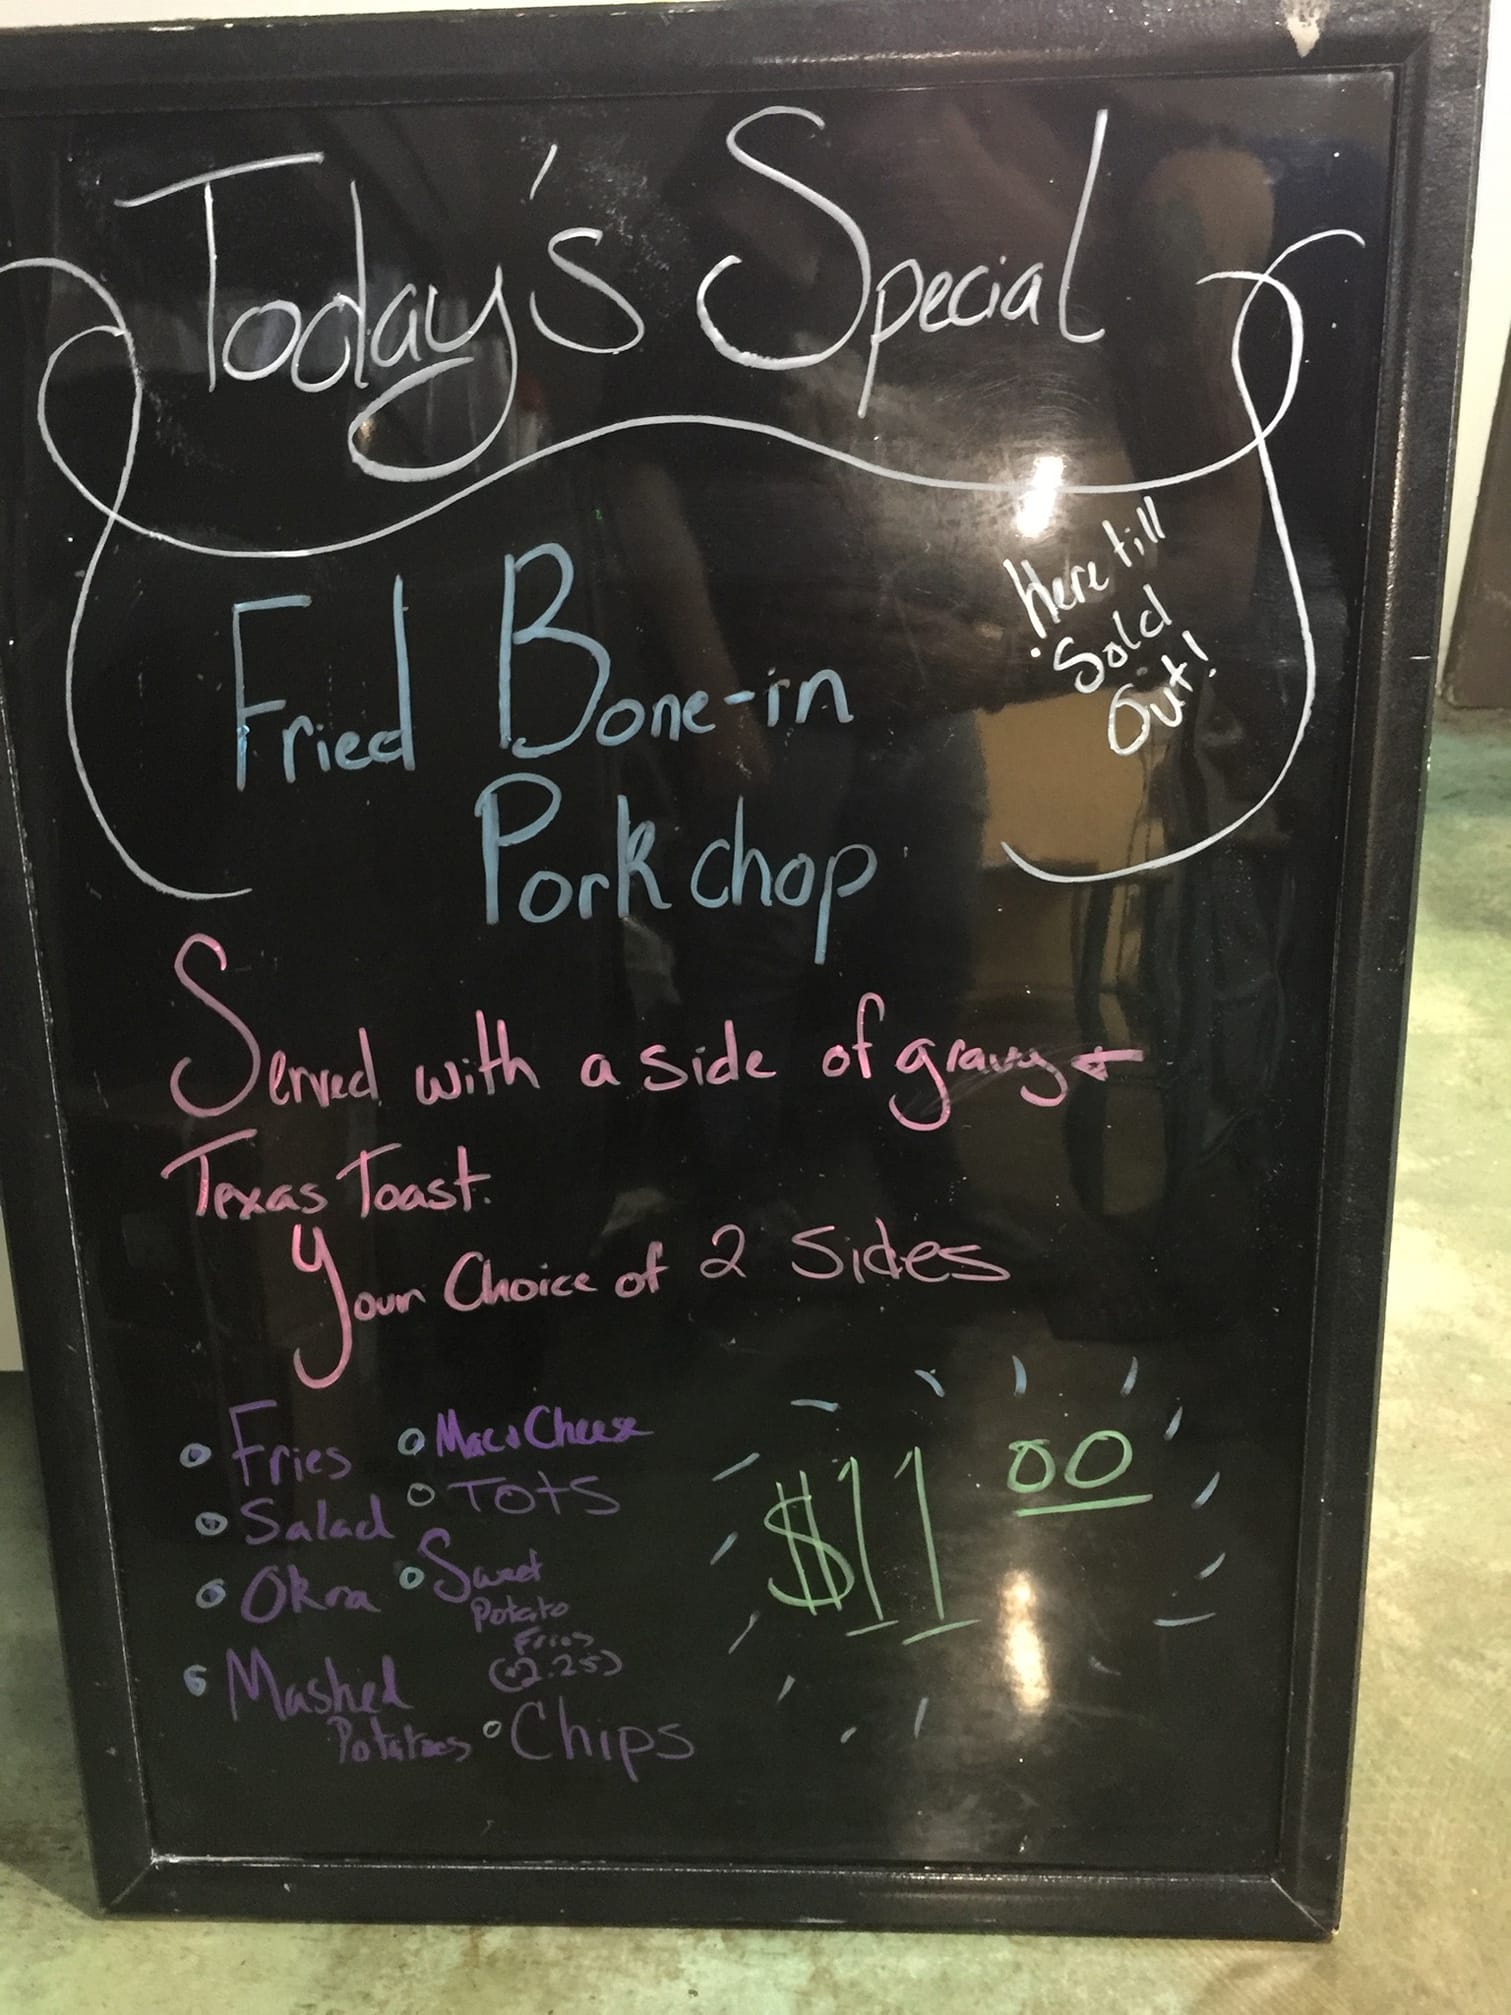 Today's Special
Here till
Sold
Out!
Fried Bone-in
Pork chop
Served with a side of gravy +
Texas Toast.
Your Choice of 2 Sides
Fries
Mac & Cheese
Salad
TOTS
Okra
Sweet
Potato
Fries
(+2.25)
Mashed
Potatoes
Chips
$11 00